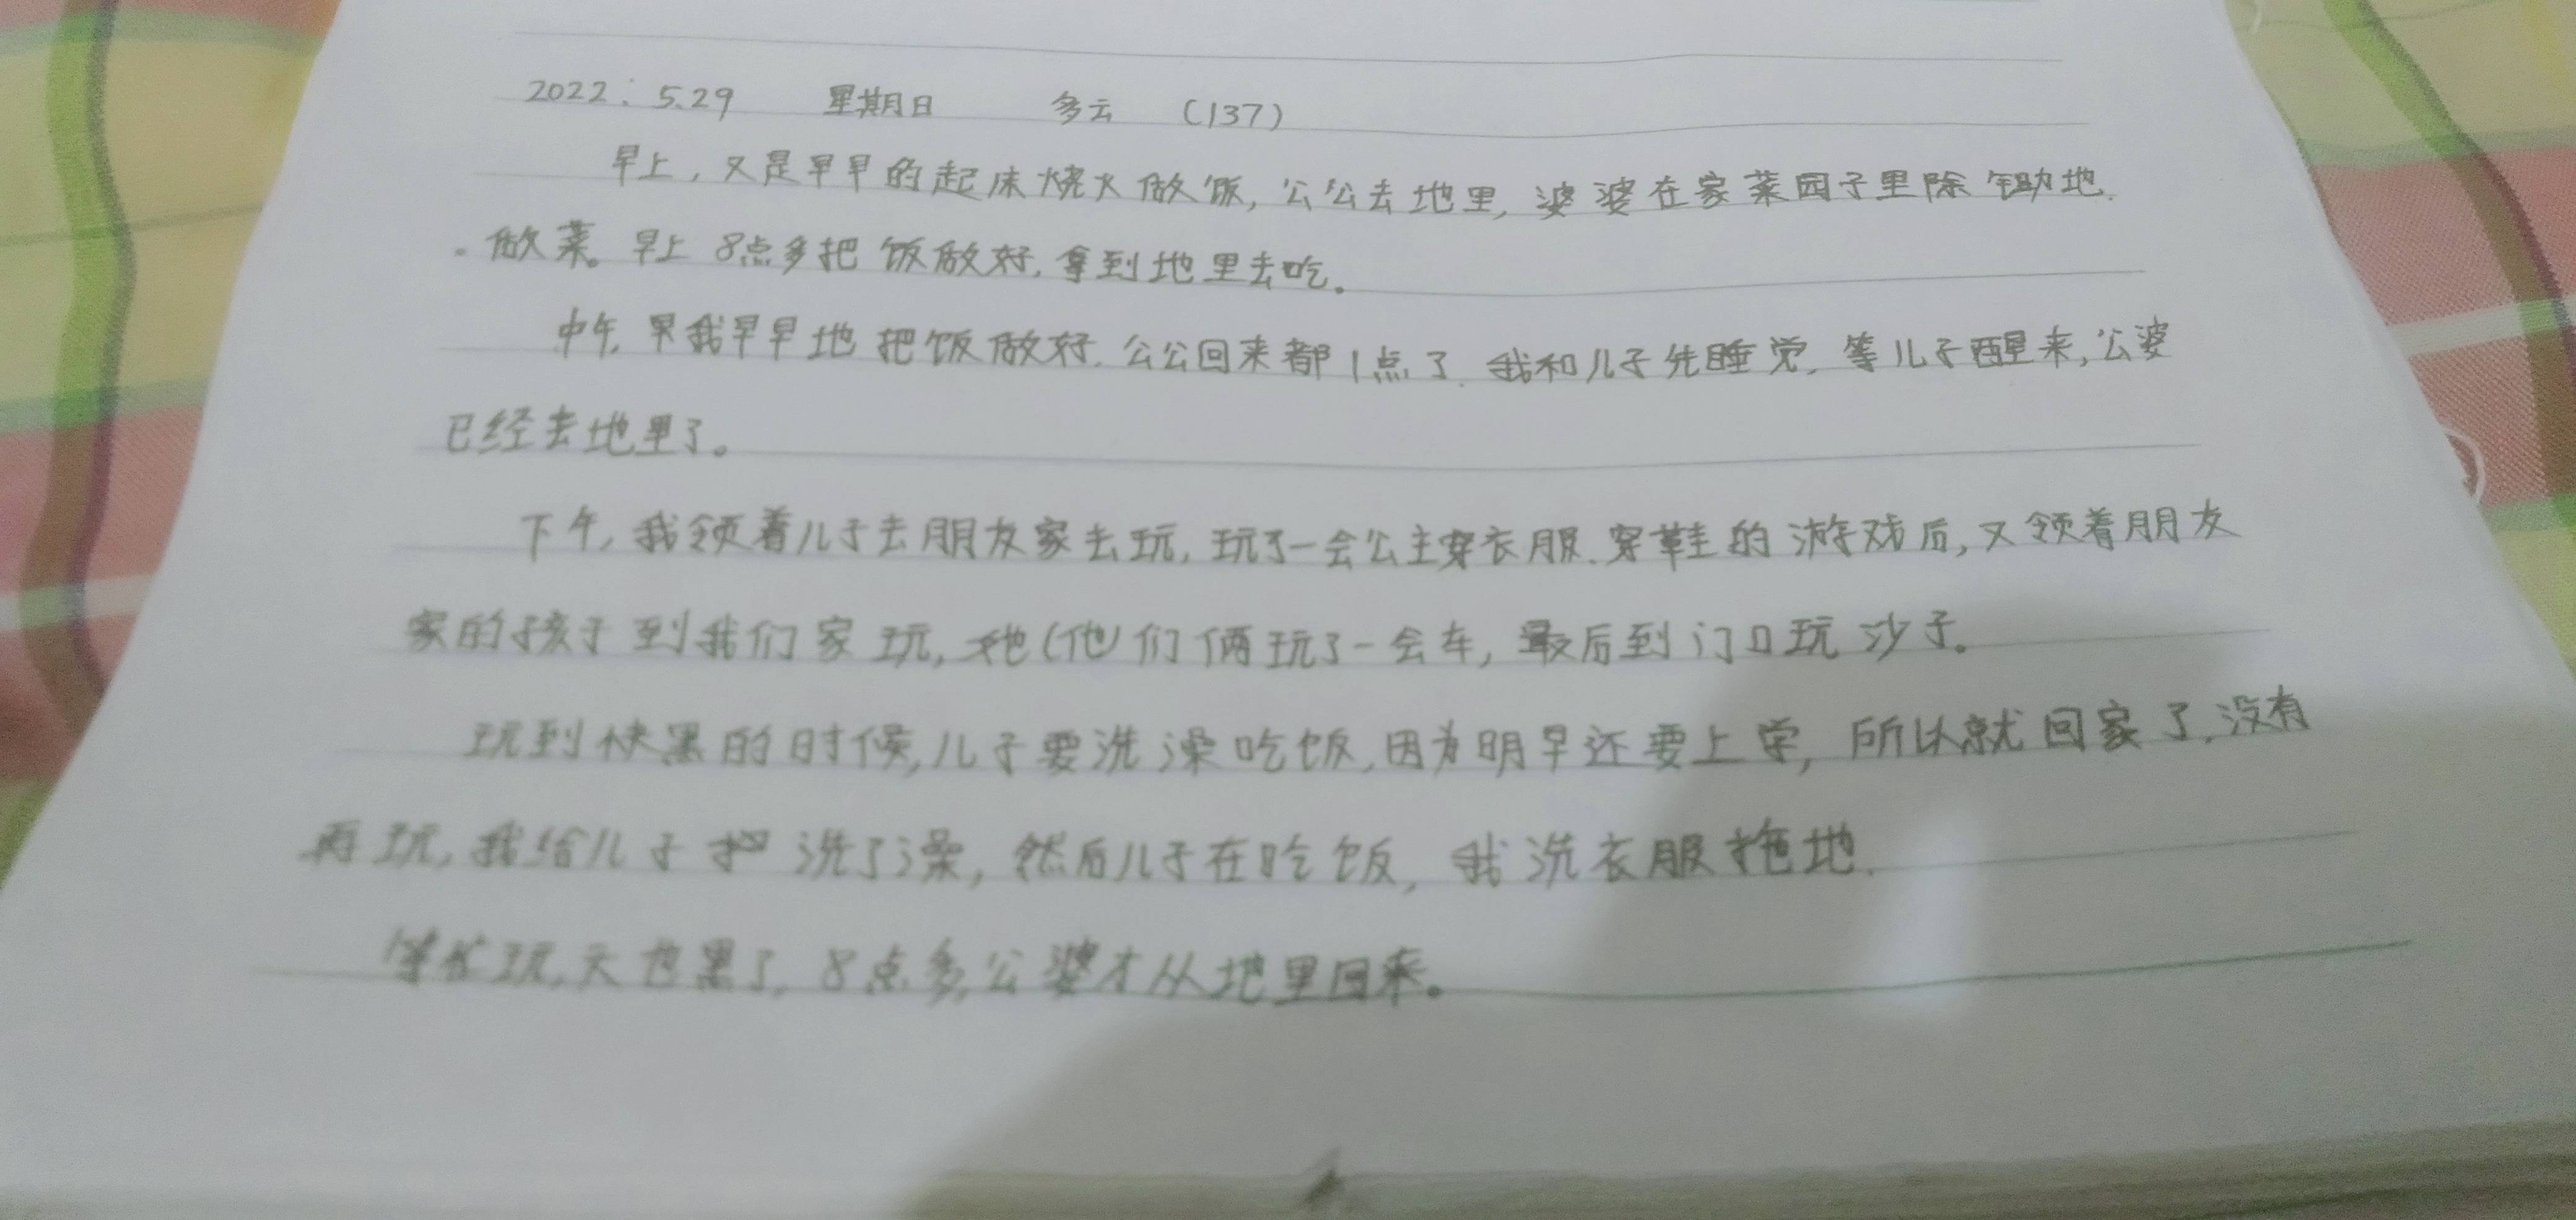 2022.5.29 星期日 多云 (137)
早上,又是早早的起床烧火做饭,公公去地里,婆婆在家菜园子里除锄地.
做菜。早上8点多把饭做好,拿到地里去吃。
中午,早我早早地把饭做好.公公回来都1点了.我和儿子先睡觉,等儿子醒来,公婆
已经去地里了。
下午,我领着儿子去朋友家去玩,玩了一会公主穿衣服.穿鞋的游戏后,又领着朋友
家的孩子到我们家玩,她(他)们俩玩了一会车,最后到门口玩沙子。
玩到快黑的时候,儿子要洗澡吃饭,因为明早还要上学,所以就回家了.没有
再玩,我给儿子把洗了澡,然后儿子在吃饭,我洗衣服拖地.
等忙玩,天也黑了,8点多公婆才从地里回来。